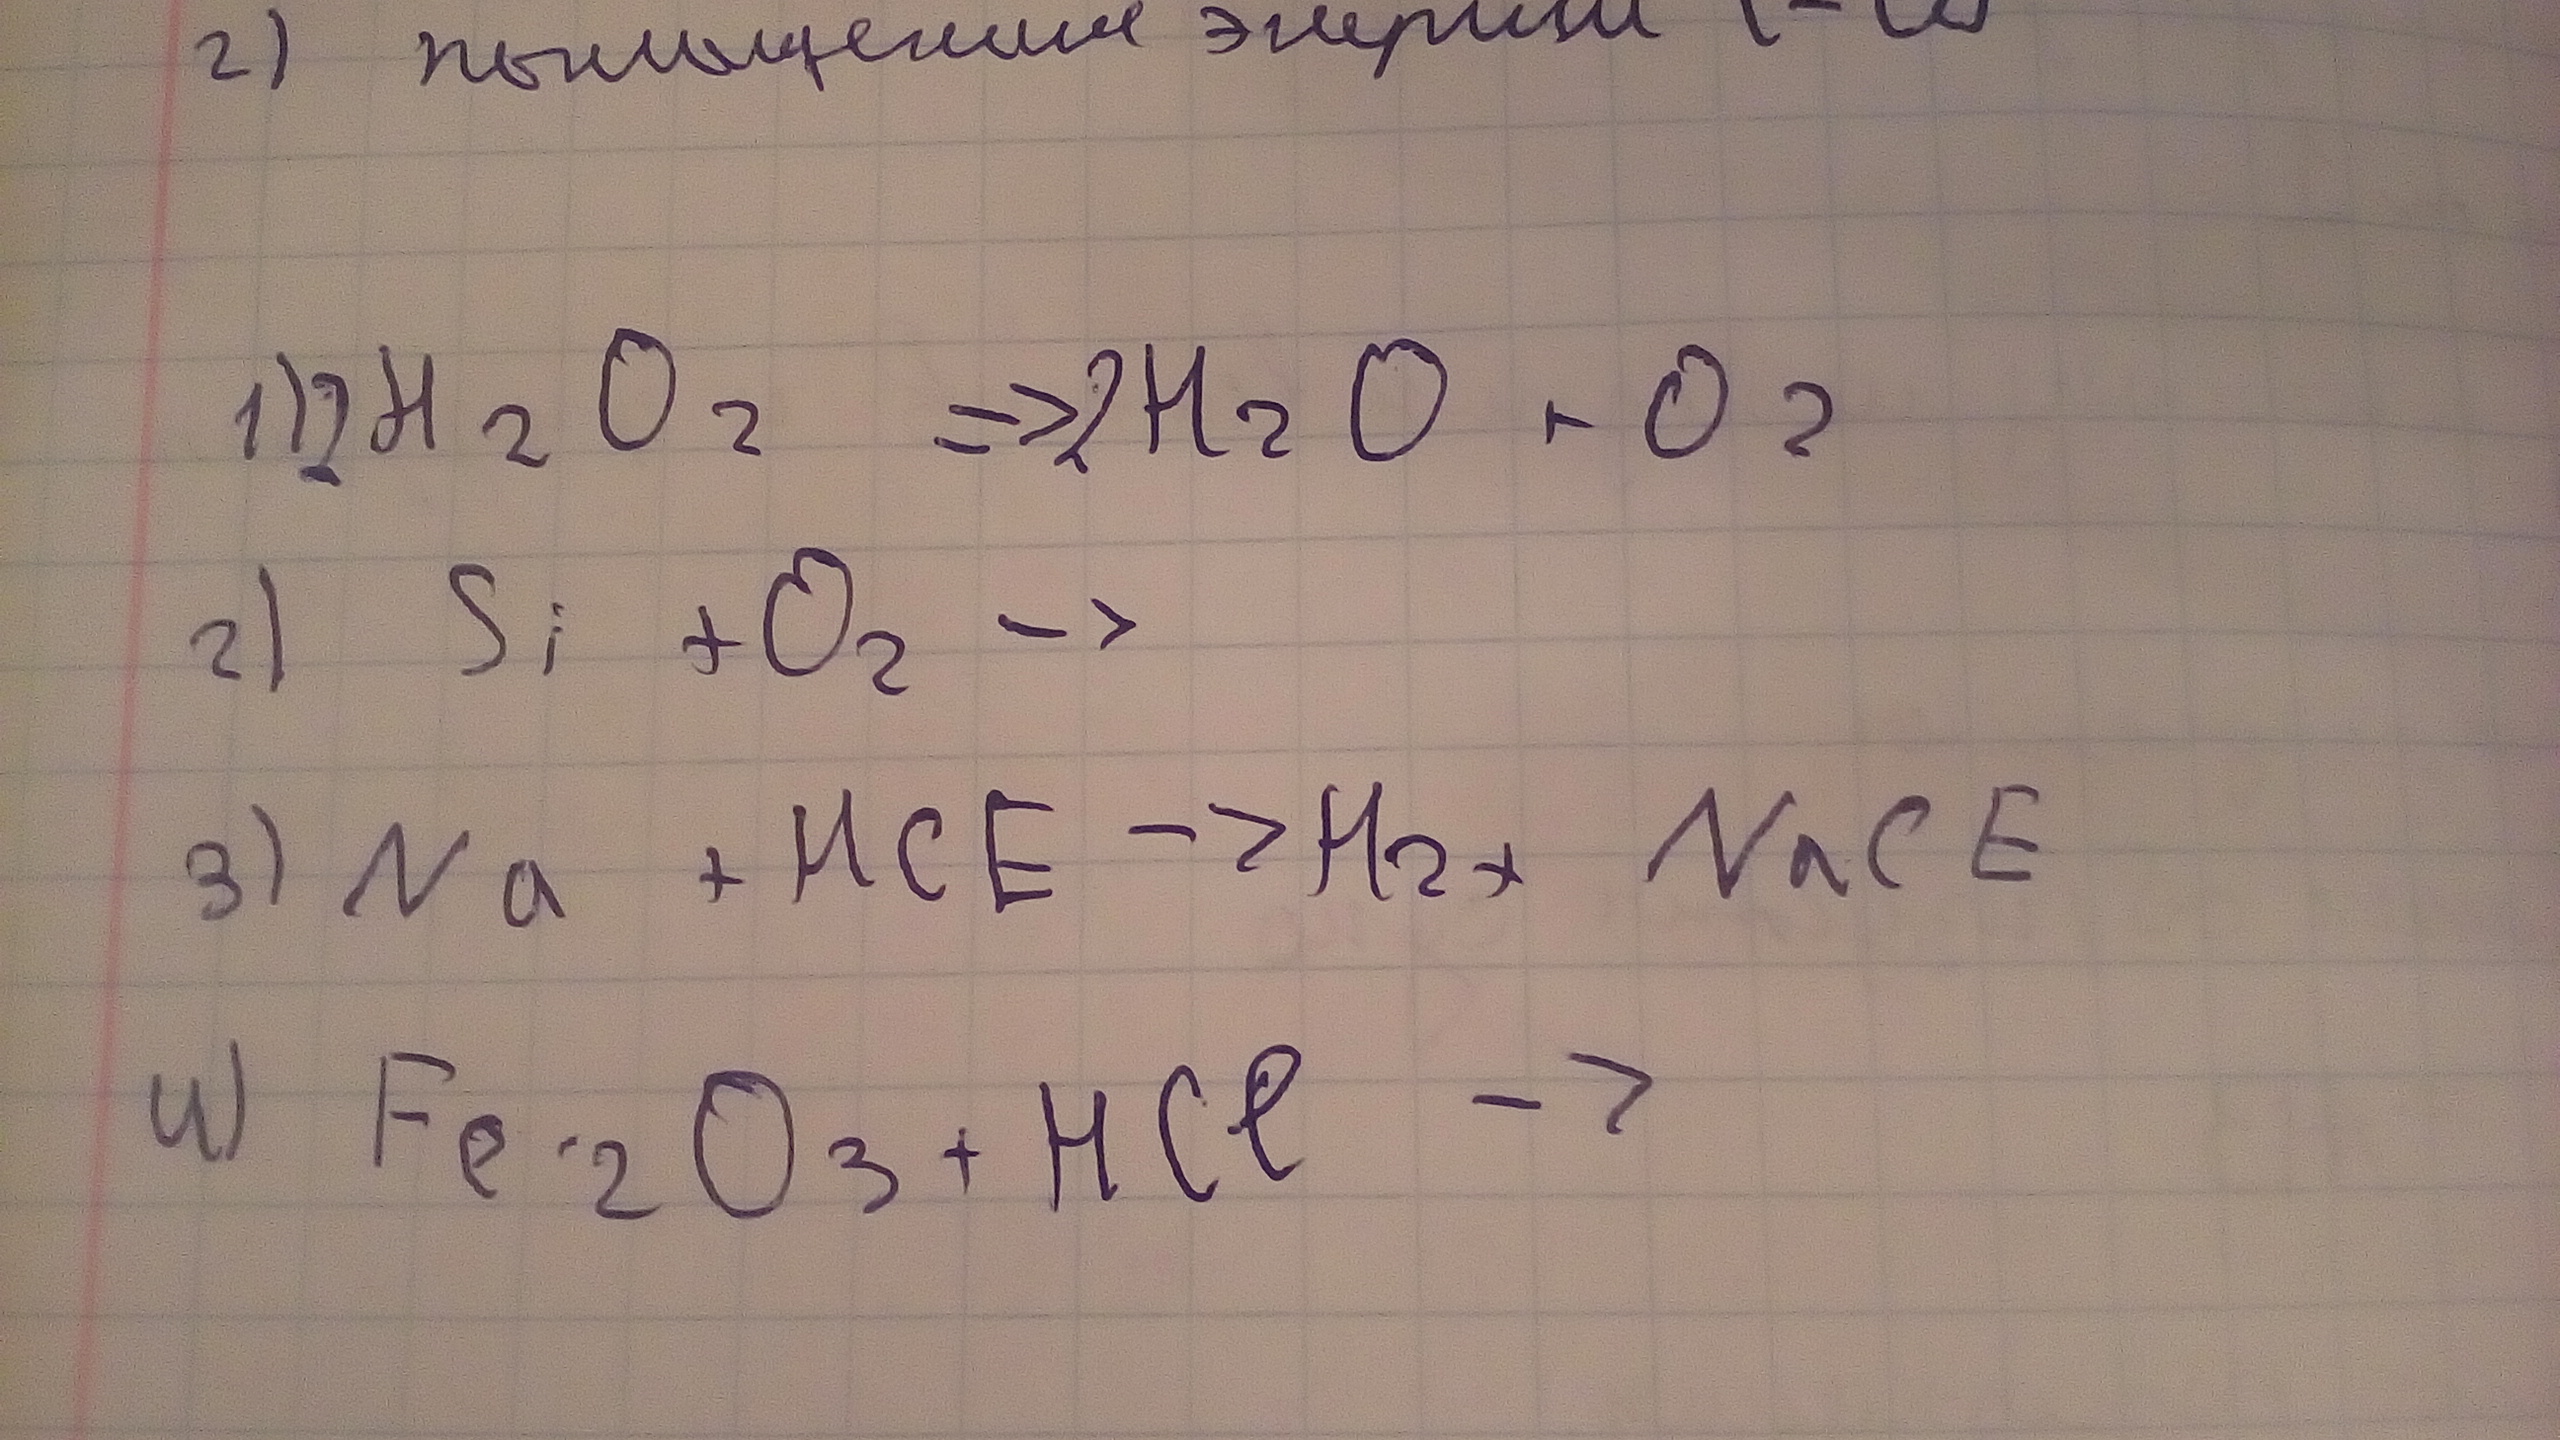 2) поглощения энергии
1) 2H2O2 => 2H2O + O2
2) Si + O2 ->
3) Na + HCE -> H2 + NaCE
4) Fe2O3 + HCl ->